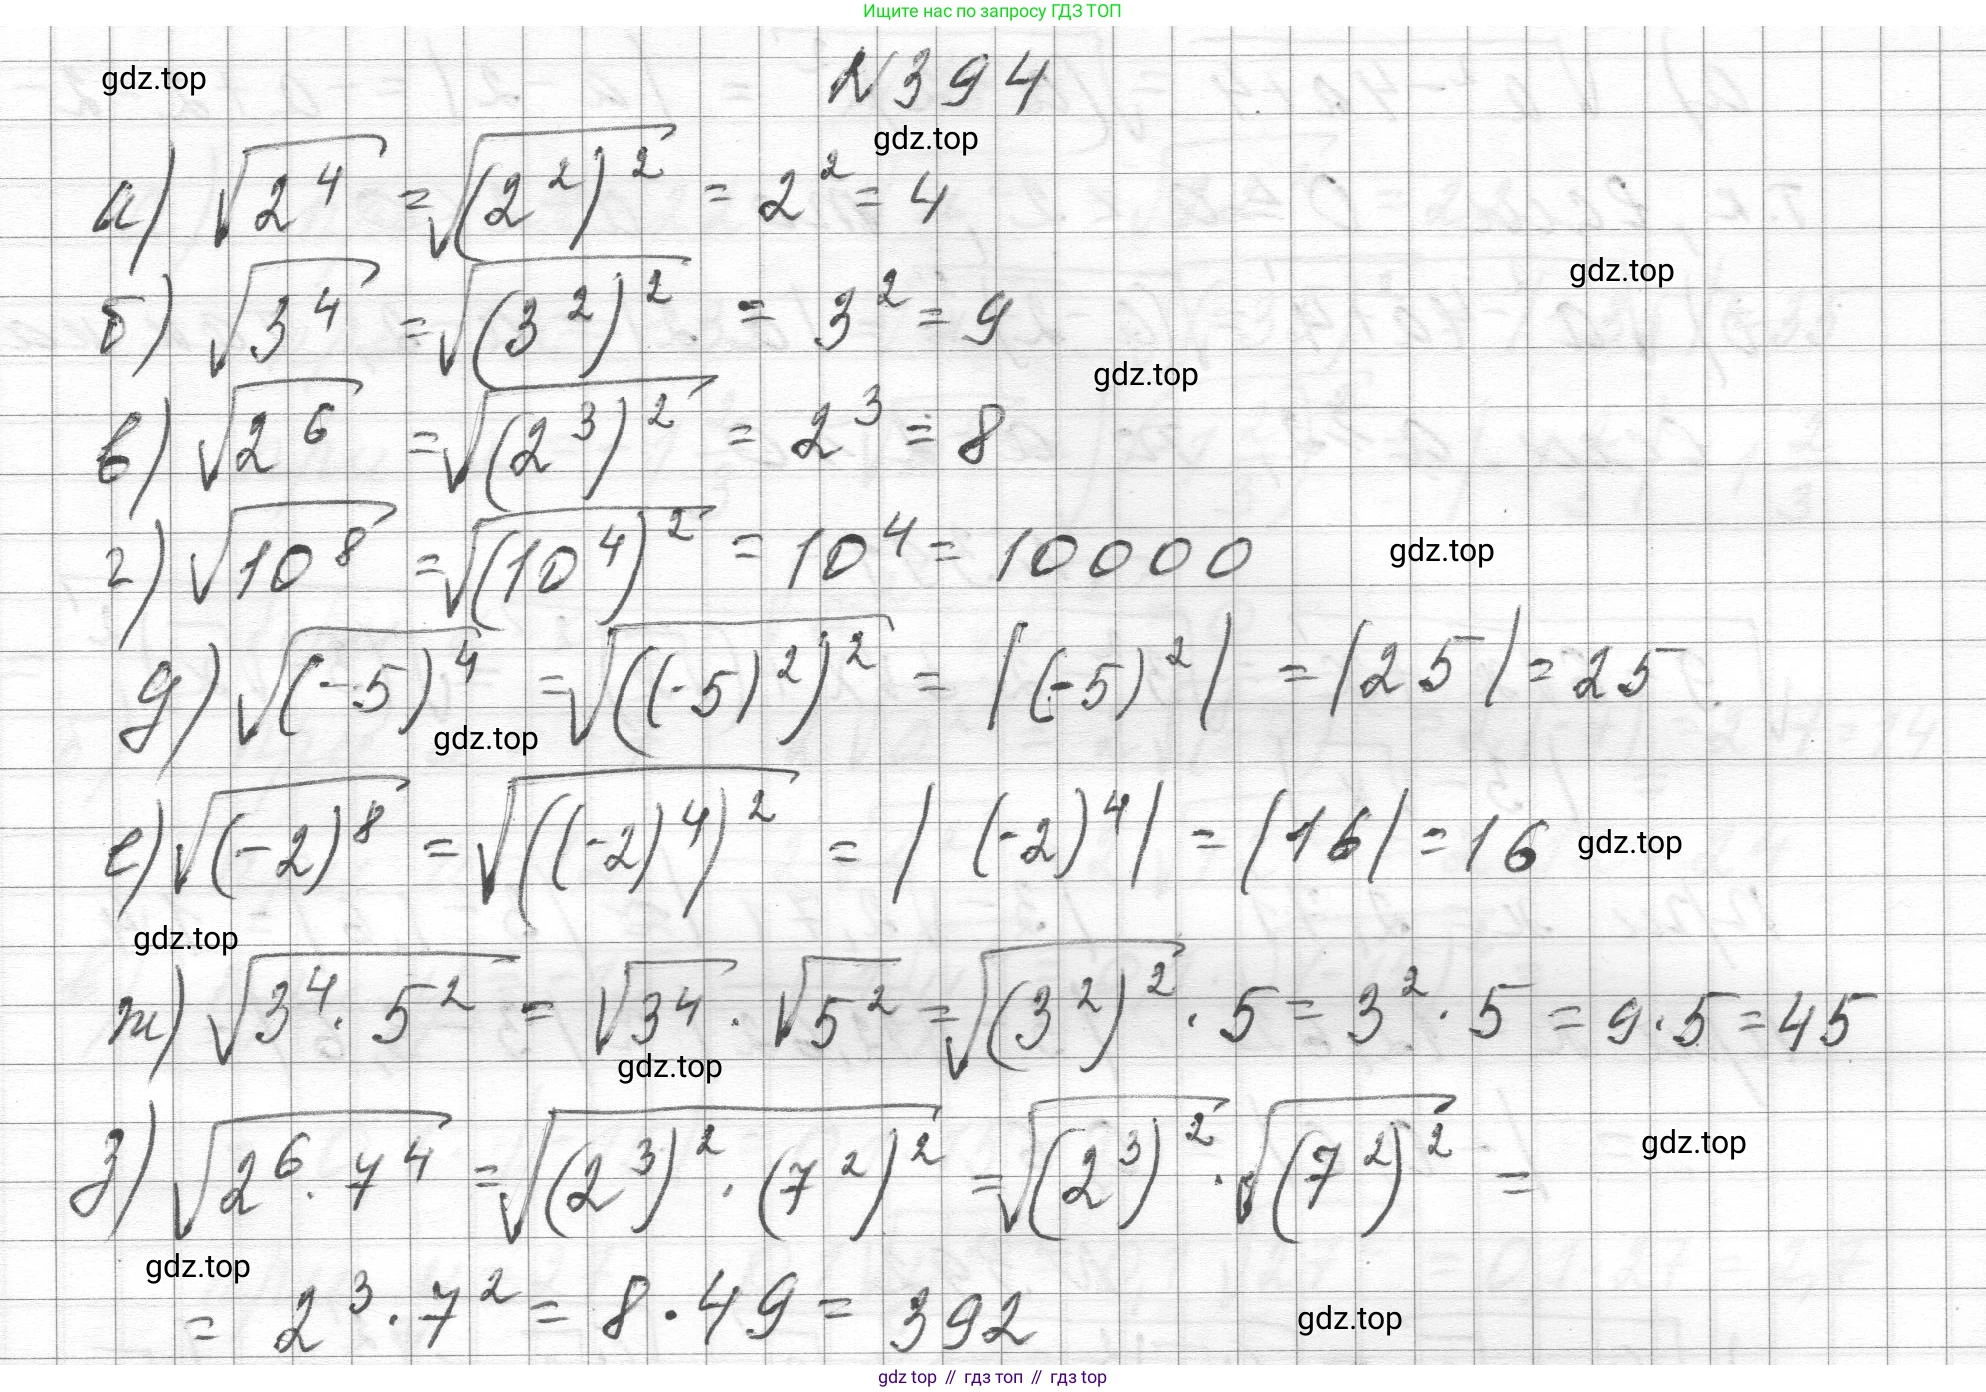 Ищите нас по запросу ГДЗ ТОП
gdz.top
№394
gdz.top
а) √(2⁴) = √((2²)²) = 2² = 4
gdz.top
б) √(3⁴) = √((3²)²) = 3² = 9
gdz.top
в) √(2⁶) = √((2³)²) = 2³ = 8
г) √(10⁸) = √((10⁴)²) = 10⁴ = 10000
gdz.top
д) √((-5)⁴) = √(((-5)²)²) = |(-5)²| = |25| = 25
gdz.top
е) √((-2)⁸) = √(((-2)⁴)²) = |(-2)⁴| = |16| = 16
gdz.top
gdz.top
ж) √(3⁴ · 5²) = √(3⁴) · √(5²) = √((3²)²) · 5 = 3² · 5 = 9 · 5 = 45
gdz.top
з) √(2⁶ · 7⁴) = √((2³)² · (7²)²) = √((2³)²) · √((7²)²) =
gdz.top
gdz.top
= 2³ · 7² = 8 · 49 = 392
gdz.top
gdz top // гдз топ // gdz top